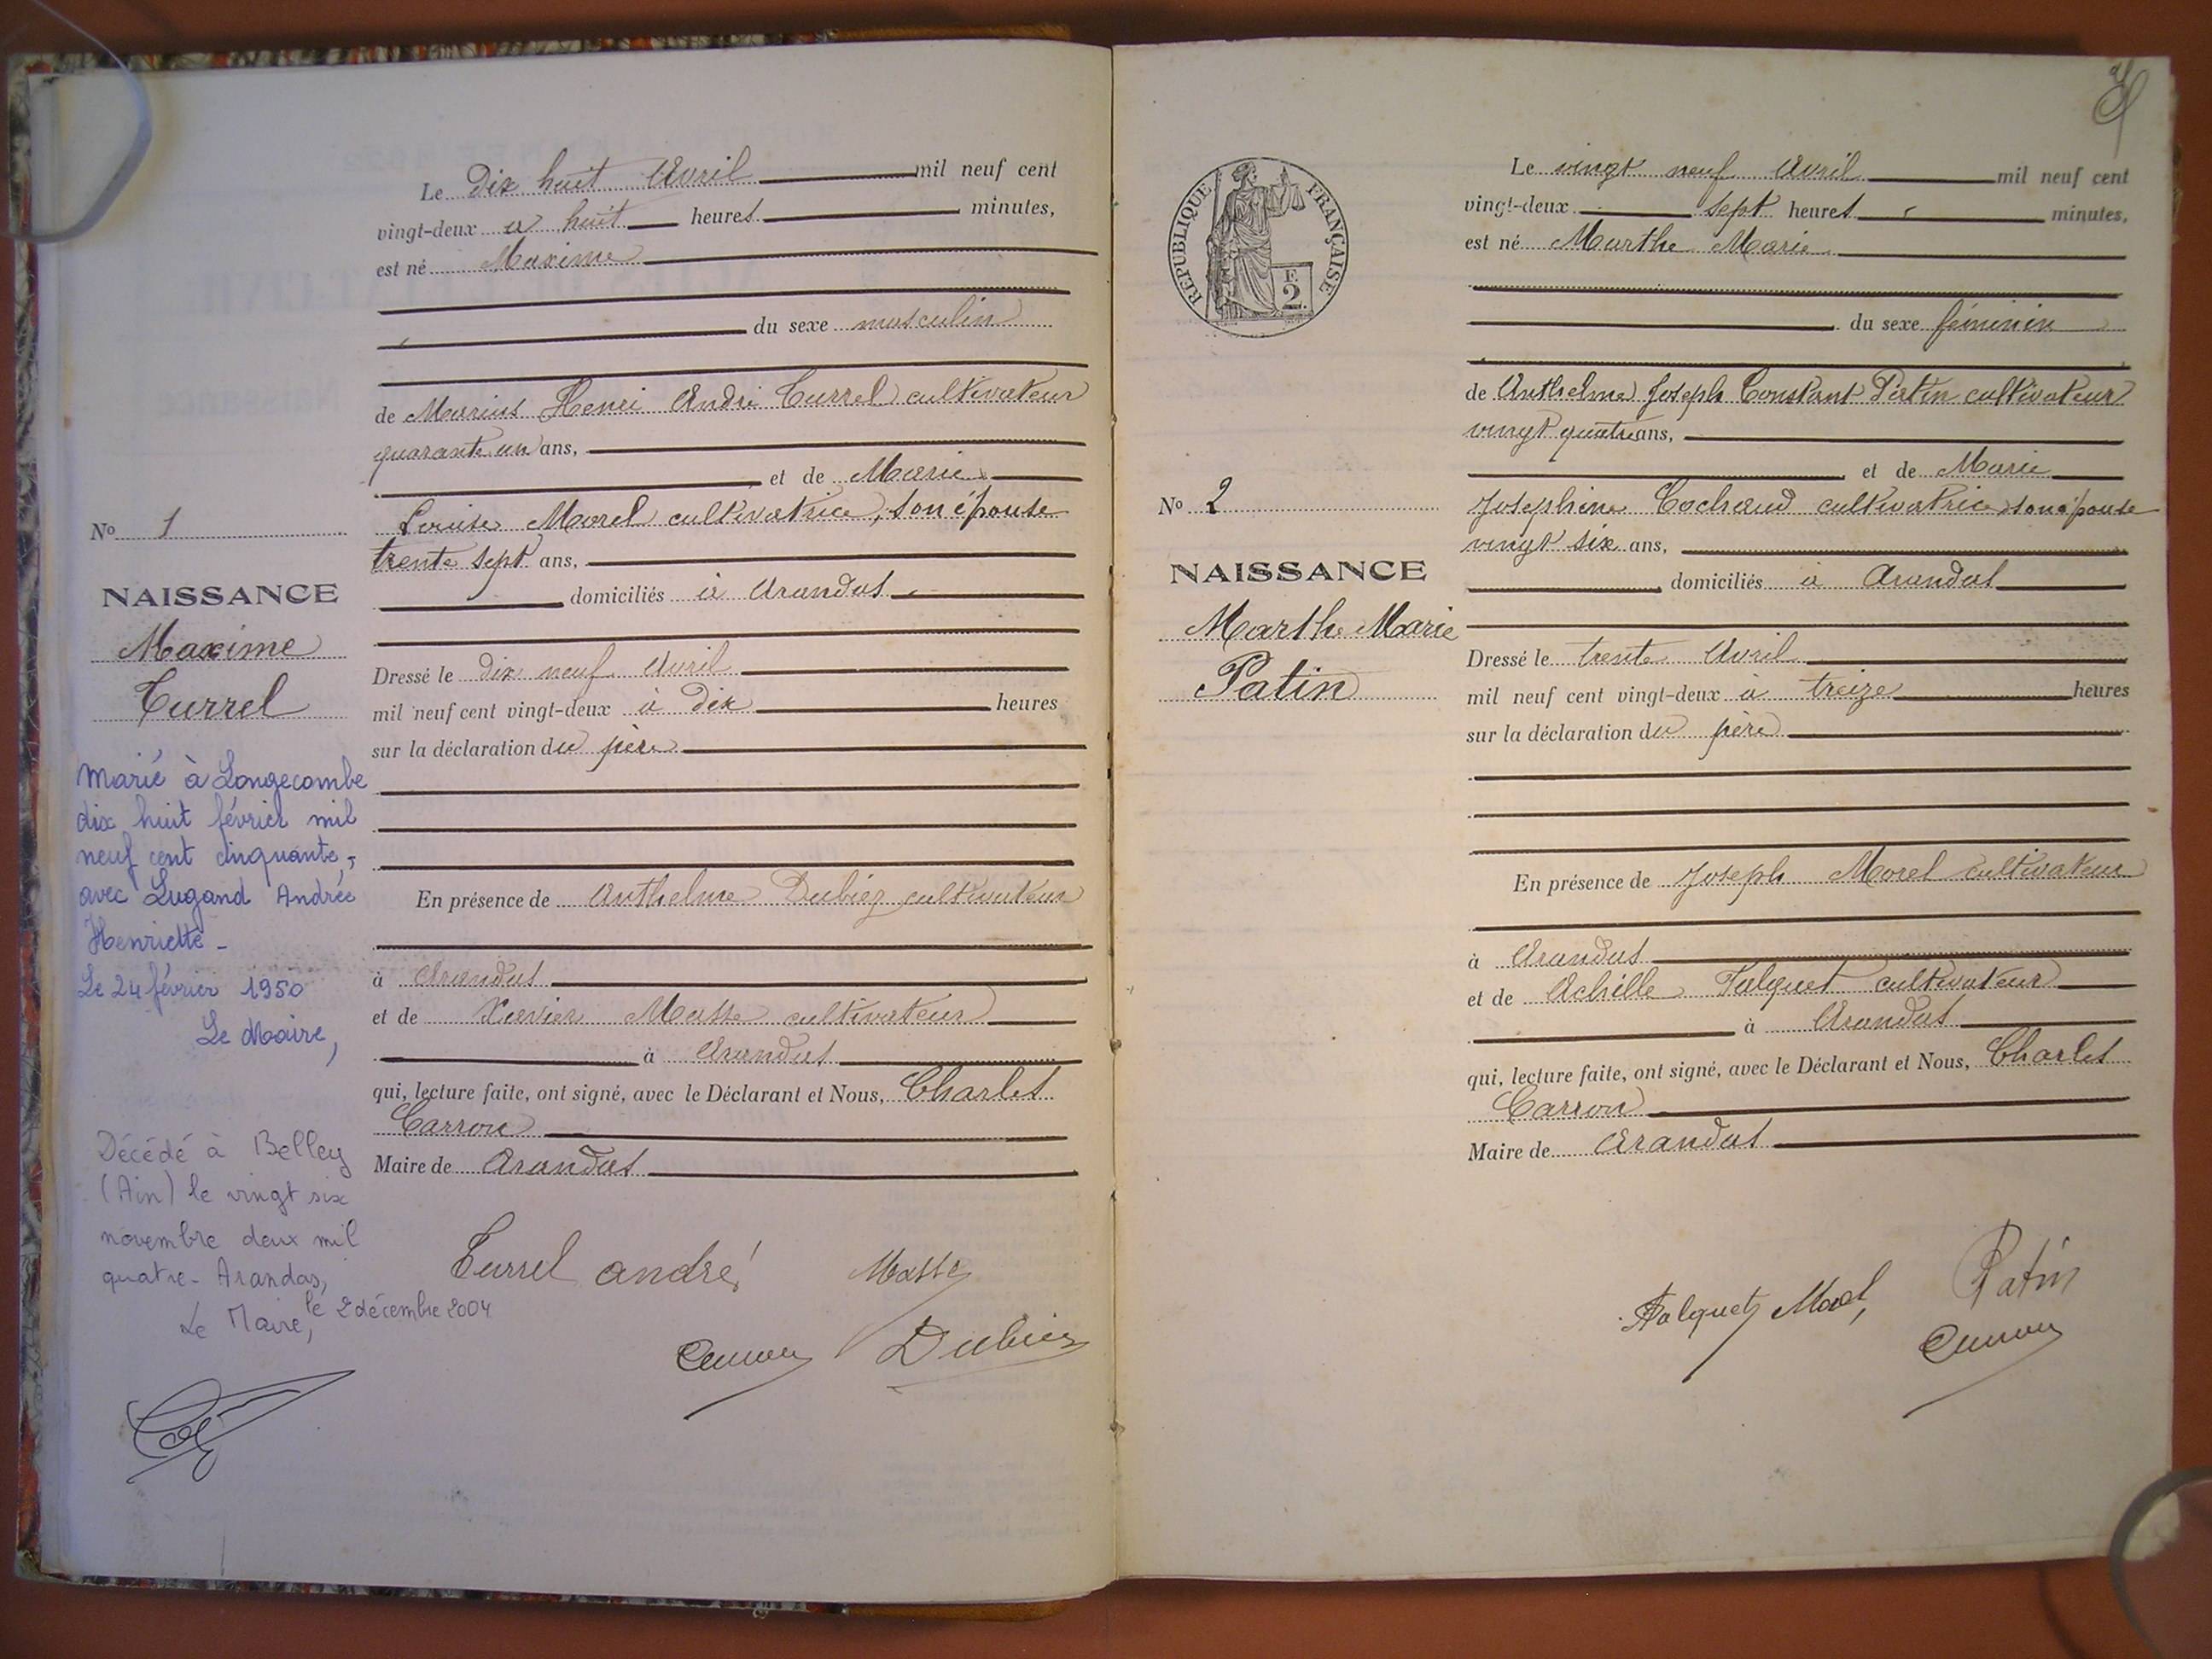 Le dix huit Avril mil neuf cent
vingt-deux à huit heures minutes,
est né Maxime
du sexe masculin
de Marius Henri André Turrel cultivateur
quarante un ans,
et de Marie
Louise Morel cultivatrice, son épouse
trente sept ans,
domiciliés à Arandas
Dressé le dix neuf Avril
mil neuf cent vingt-deux à dix heures
sur la déclaration du père
En présence de Anthelme Dubiez cultivateur
à Arandas
et de Xavier Masse cultivateur
à Arandas
qui, lecture faite, ont signé, avec le Déclarant et Nous, Charles
Carron
Maire de Arandas
Turrel andré Masse
Dubiez
No 1
NAISSANCE
Maxime
Turrel
Marié à Longecombe
dix huit février mil
neuf cent cinquante,
avec Lugand Andrée
Henriette -
Le 24 février 1950
Le Maire,
Décédé à Belley
(Ain) le vingt six
novembre deux mil
quatre - Arandas,
le 2 décembre 2004
Le Maire,
RÉPUBLIQUE FRANÇAISE
E
2
Le vingt neuf Avril mil neuf cent
vingt-deux sept heures minutes,
est né Marthe Marie
du sexe féminin
de Anthelme Joseph Constant Patin cultivateur
vingt quatre ans,
et de Marie
Joséphine Cochaud cultivatrice son épouse
vingt six ans,
domiciliés à Arandas
Dressé le trente Avril
mil neuf cent vingt-deux à treize heures
sur la déclaration du père
En présence de Joseph Morel cultivateur
à Arandas
et de Achille Falquet cultivateur
à Arandas
qui, lecture faite, ont signé, avec le Déclarant et Nous, Charles
Carron
Maire de Arandas
Falquet Morel Patin
No 2
NAISSANCE
Marthe Marie
Patin